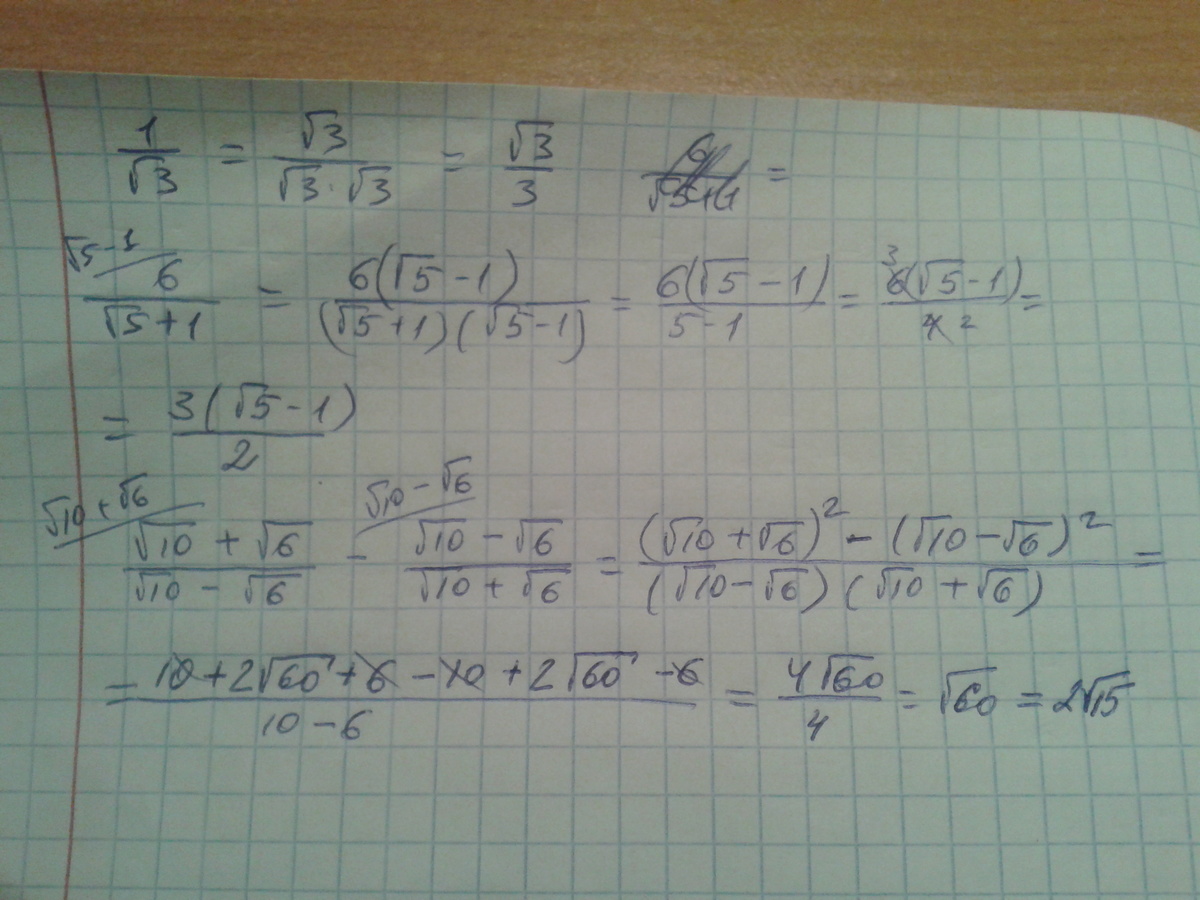 1/√3 = √3/(√3·√3) = √3/3   6/(√5+1) =
√5-1/ 6/(√5+1) = 6(√5-1)/((√5+1)(√5-1)) = 6(√5-1)/(5-1) = ³6(√5-1)/(4 2) =
= 3(√5-1)/2
√10+√6/ (√10+√6)/(√10-√6) - √10-√6/ (√10-√6)/(√10+√6) = ((√10+√6)²-(√10-√6)²)/((√10-√6)(√10+√6)) =
= (10+2√60+6-10+2√60-6)/(10-6) = 4√60/4 = √60 = 2√15